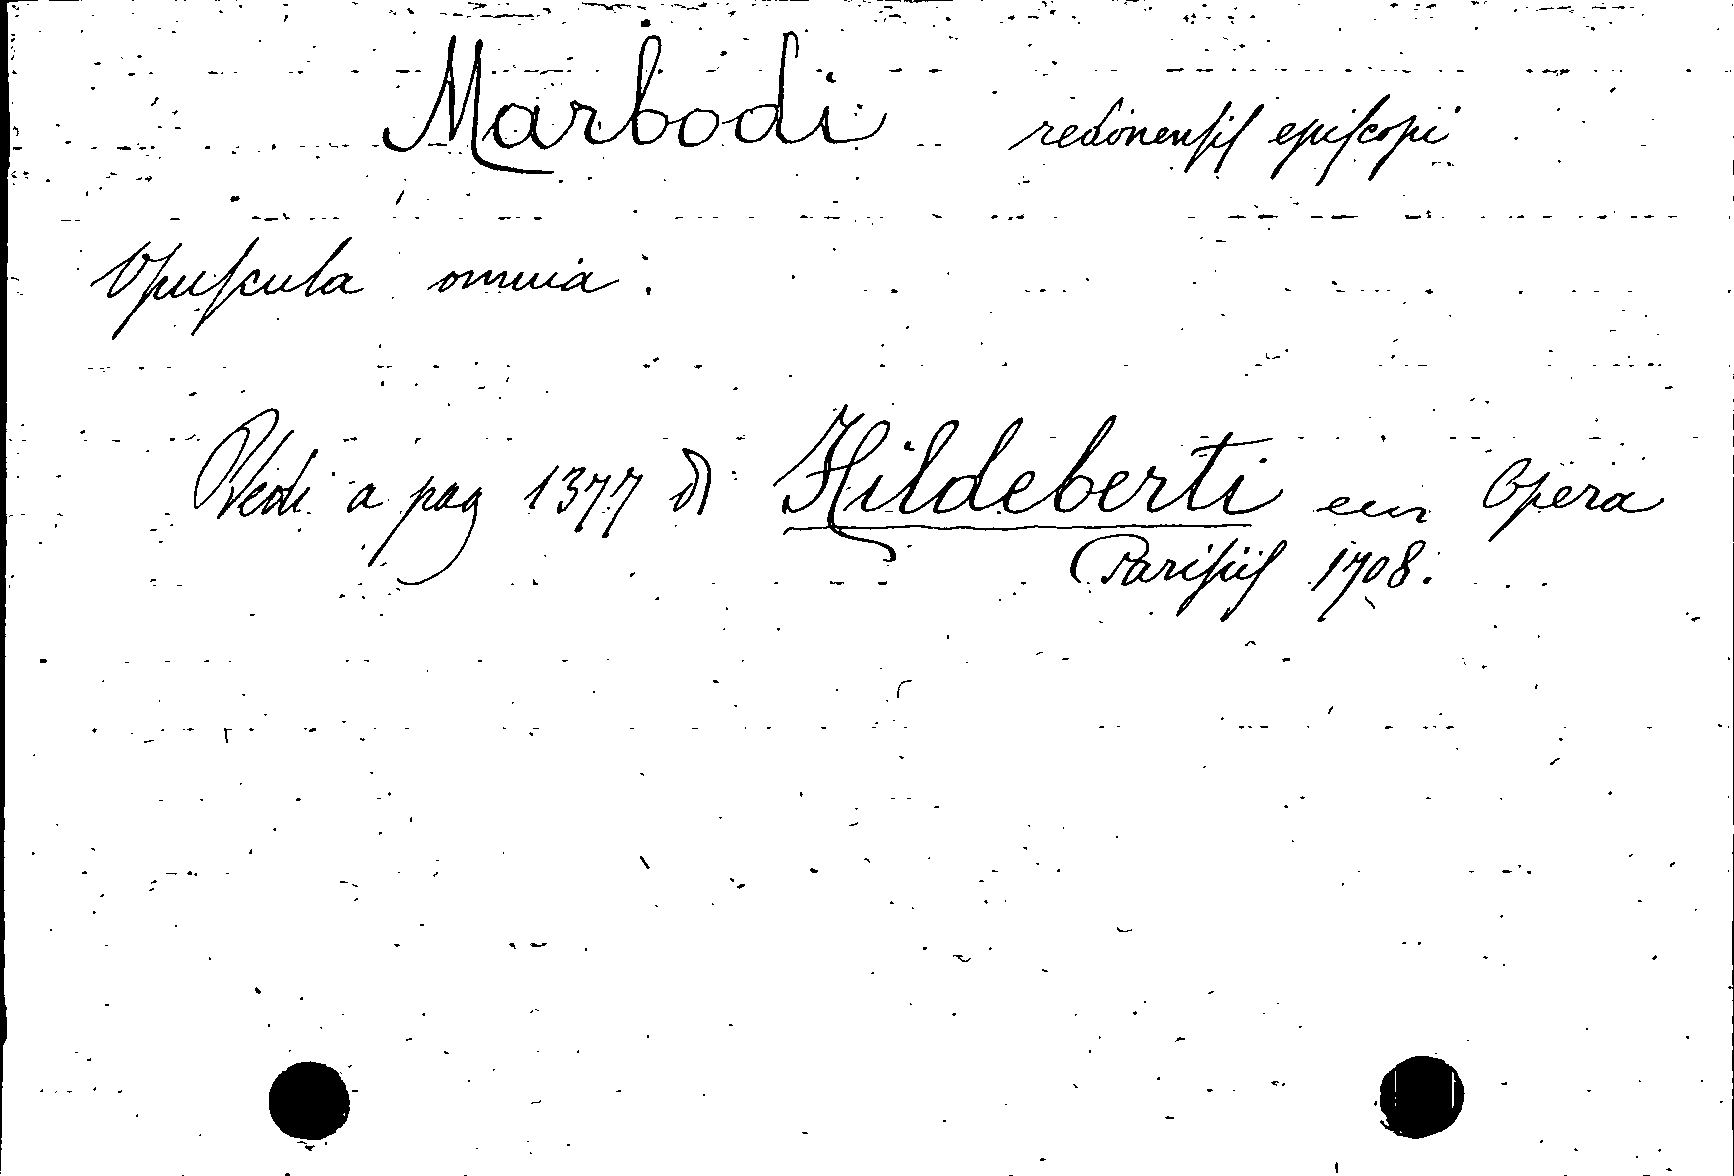 Marbodi redonensis episcopi
Opuscula omnia.
Vedi a pag 1377 di Hildeberti een Opera
Parisiis 1708.